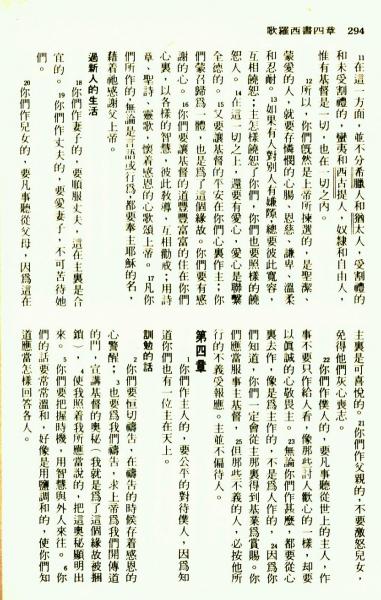 歌羅西書四章 294
11在這一方面，並不分希臘人和猶太人，受割禮的
和未受割禮的，蠻夷和西古提人，奴隸和自由人，
惟有基督是一切，也在一切之內。
12所以，你們旣然是上帝所揀選的，是聖潔、
蒙愛的人，就要存憐憫的心腸、恩慈、謙卑、溫柔
和忍耐。13如果有人對別人有嫌隙，總要彼此寬容，
互相饒恕；主怎樣饒恕了你們，你們也要照樣的饒
恕人。14在這一切之上，還要有愛心，愛心是聯繫
全德的。15又要讓基督的平安在你們心裏作主；你
們蒙召歸爲一體，也是爲了這個緣故。你們要有感
謝的心。16你們要讓基督的道豐豐富富的住在你們
心裏，以各樣的智慧，彼此教導，互相勸戒；用詩
章、聖詩、靈歌，懷着感恩的心歌頌上帝。17凡你
們所作的，無論是言語或行爲，都要奉主耶穌的名，
藉着祂感謝父上帝。
過新人的生活
18你們作妻子的，要順服丈夫，這在主裏是合
宜的。19你們作丈夫的，要愛妻子，不可苦待她
20你們作兒女的，要凡事聽從父母，因爲這在
主裏是可喜悅的。21你們作父親的，不要激怒兒女，
免得他們灰心喪志。
22你們作僕人的，要凡事聽從世上的主人，作
事不要只作給人看，像那些討人歡心的一樣，却要
以眞誠的心敬畏主。23無論你們作甚麼，都要從心
裏去作，像是爲主作的，不是爲人作的，24因爲你
們知道，你們一定會從主那裏得到基業爲賞賜。你
們應當服事主基督，25但那些不義的人，必按他所
行的不義受報應。主並不偏待人。
第四章
1你們作主人的，要公平的對待僕人，因爲知
道你們也有一位主在天上。
訓勉的話
2你們要恒切禱吿，在禱吿的時候存着感恩的
心警醒；3也要爲我們禱吿，求上帝爲我們開傳道
的門，宣講基督的奧秘（我就是爲了這個緣故被捆
鎖）4使我照着我所應當說的，把這奧秘顯明出
來。5你們要把握時機，用智慧與外人來往。6你
們的話要常常溫和，好像是用鹽調和的，使你們知
道應當怎樣回答各人。